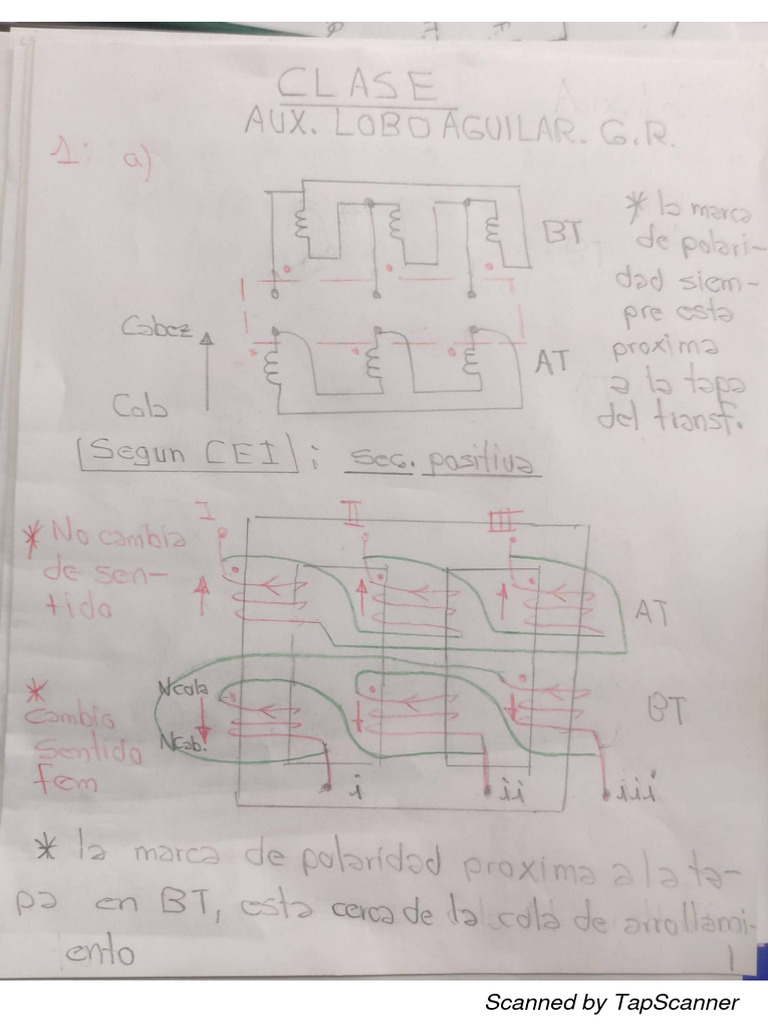 CLASE
AUX. LOBO AGUILAR. G.R.
1: a)
BT
* la marca
de polari-
dad siem-
pre esta
proxima
a la tapa
del transf.
Cabez
Cola
AT
Segun CEI : sec. positiva
I II III
* No cambia
de sen-
tido
AT
*
Cambia
Sentido
fem
Ncola
Ncab.
BT
i ii iii
* la marca de polaridad proxima a la ta-
pa en BT, esta cerca de la cola de arrollami-
ento
1
Scanned by TapScanner